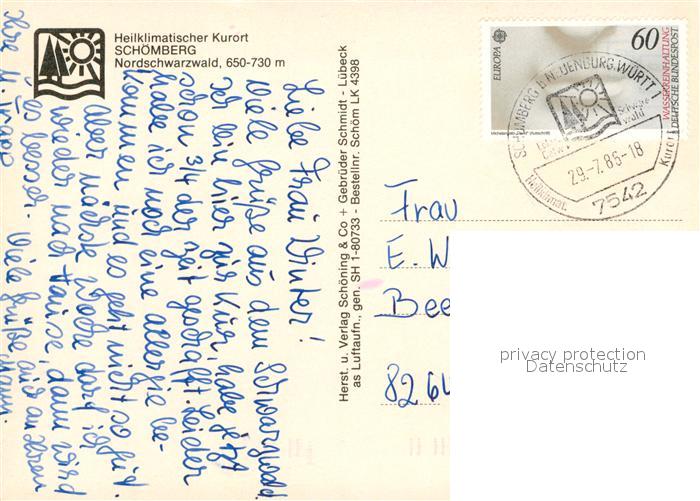 Heilklimatischer Kurort
SCHÖMBERG
Nordschwarzwald, 650-730 m
Liebe Frau Winter!
Viele Grüße aus dem Schwarzwald.
Ich bin hier zur Kur, habe jetzt
schon 3/4 der Zeit geschafft. Leider
habe ich noch eine Allergie be-
kommen und es geht nicht so gut.
Aber nächste Woche darf ich
wieder nach Hause, dann wird
es besser. Viele Grüße auch an Ihren
Mann.
Ihre U. Trapp
Herst. u. Verlag Schöning & Co + Gebrüder Schmidt - Lübeck
as Luftaufn., gen. SH 1-80733 - Bestellnr. Schöm LK 4398
EUROPA
60
WASSERREINHALTUNG
DEUTSCHE BUNDESPOST
SCHÖMBERG B NEUENBURG, WÜRTT
29.-7.86-18
Heilklimat.
Kurort
7542
Frau
E. W
Bee
8264
privacy protection
Datenschutz